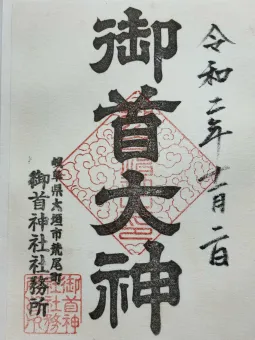 令和二年十一月二日
御首大神
岐阜県大垣市荒尾町
御首神社社務所
御首神社社務所